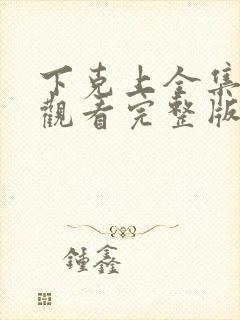 下克上全集
觀看完整版
鍾鑫